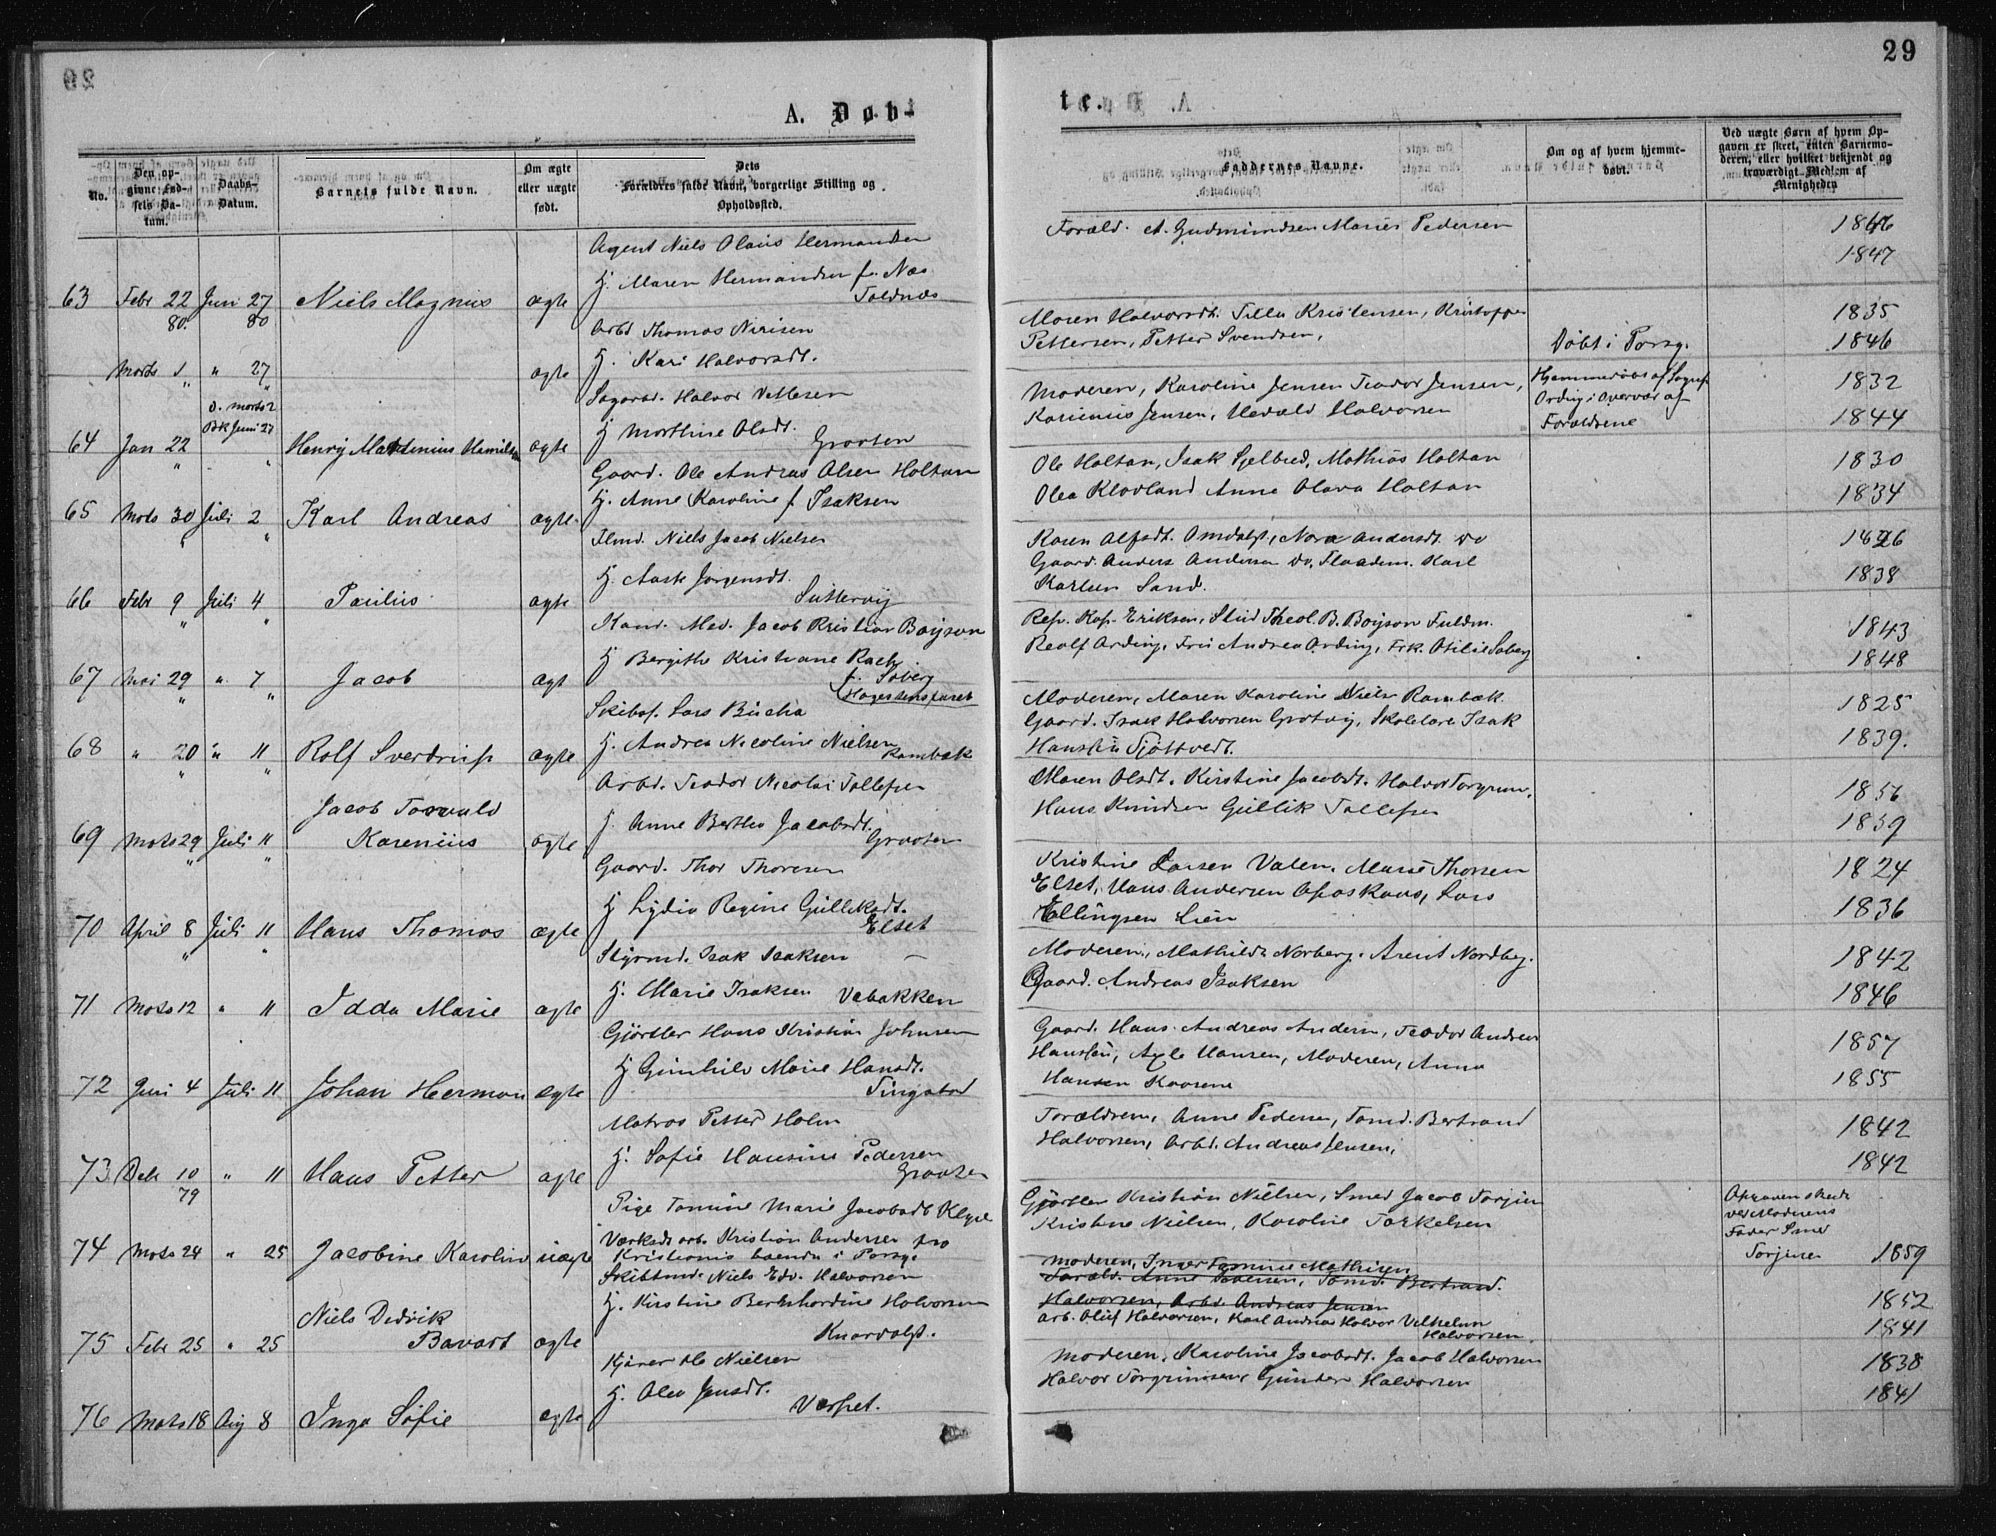 29
A. Døb-
te.
No.
Den op-
givne Fød-
sels Da-
tum.
Daabs-
Datum.
Barnets fulde Navn.
Om ægte
eller uægte
født.
Dets
Forældres fulde Navn, borgerlige Stilling og
Opholdssted.
Faddernes Navne.
Om og af hvem hjemme-
døbt.
Ved uægte Børn af hvem Op-
gaven er skeet, enten Barnemo-
deren, eller hvilket bekjendt og
troværdigt Medlem af
Menigheden
Agent Niels Olaus Hermandsen
H. Maren Hermandsen f. Næs
63 Febr 22 Juni 27 Niels Magnus ægte
Toldnæs
80. 80
Foræld. A. Gudmundsen Marius Pedersen
1847
Arbd Thomas Nirisen
H. Kari Halvorsdt.
Marts 1 " 27 ægte
Maren Halvorsdt. Tilla Kristensen, Kristoffer
Pettersen, Petter Svendsen,
Døbt i Porsg.
1835
1846
D. Marts 2
Bk Juni 27
Sagarb. Halvor Vettesen
H Marthine Olsdt.
64 Jan 22 Henry Martinius ægte
Graaten
Moderen, Karoline Jensen Teodor Jensen,
Karinius Jensen, Harald Halvorsen
Hjemmedøbt af Sogneps
Ording i Overvær af
Forældrene
1832
1844
Gaard. Ole Andreas Olsen Holtan
H. Anne Karoline f Isaksen
65 Marts 30 Juli 2 Karl Andreas ægte.
Ole Holtan, Isak Sjelbred, Mathias Holtan
Olea Klovland Anne Olava Holtan
1830
1834
Tlmd. Niels Jacob Nielsen
H. Aaste Jørgensdt.
66 Febr 9 Juli 4 Paulus ægte
Karen Alfsdt. Omdalst, Nora Andersdt. do
Gaard. Anders Andersen do, Flaadem. Karl
Karlsen Sand.
1838
Kand. Med. Jacob Kristian Boyson
H Bergithe Kristiane Rach
f. Søberg
67 Mai 29 " 7 Jacob ægt
Rep. Kap. Eriksen, Stud Theol. B. Boyson Fuldm.
Roalf Ording, Fru Andrea Ording, Frk. Otilie Søberg
1843
1848
Skibsf. Lars Bucha
H. Andrea Nicoline Nielsen
Rambæk
68 " 20 " 11 Rolf Sverdrup ægte
Moderen, Maren Karoline Niels Rambæk.
Gaard. Isak Halvorsen Grotvig, Skolelærer Isak
Hansen Tjøttvedt.
1825
1839.
Arbd. Teodor Nicolai Tollefsen
H. Anne Berthe Jacobsdt.
Graaten
Jacob Torvald
69 Marts 29 Juli 11 Karenius ægte
Maren Olsdt. Kirstine Jacobsdt. Halvor Torgrim.
Hans Knudsen Gullik Tollefsen
1856
1859
Gaard. Thor Thoresen
H Lydia Regine Gulliksdt.
Elset
70 April 8 Juli 11 Hans Thomas ægte
Kristine Larsen Valen. Marie Thorsen
Elset, Hans Andersen Afoskaas, Lars
Ellingsen Lien
1824
1836
Styrmd. Isak Isaksen
H. Marie Isaksen Vabakken
71 Marts 12 " 11 Idda Marie ægte
Moderen, Mathilde Norberg. Arent Nordberg.
Gaard. Andreas Isaksen
1842
1846
Gjørtler Hans Kristian Johnsen
H Gunhild Marie Hansdt.
72 Juni 4 Juli 11 Johan Herman ægte
Gaard. Hans Andreas Andersn, Teodor Andrea
Hansen, Axle Hansen, Moderen, Anna
Hansen Kaasene
1857
1855
Matros Petter Holm
H. Sofie Hansine Pedersen
Graaten
73 Debr 10 " 11 Hans Petter ægte
79
Forældrene, Anne Pedersen, Tomd. Bertrand
Halvorsen, Arbd. Andreas Jensen,
1842
1842
Pige Tomine Marie Jacobsdt Klyve
Værkeds arb. Kristian Andersen fra
Kristiania boende i Porsg.
74 Marts 24 " 25 Jacobine Karoline uægte
Gjørtler Kristian Nielsen, Smed Jacob Torjusen
Kristine Nielsen, Karoline Torkelsen
Opgaven skede
ved Moderens
Fader Smed
Torjusen
1859
Skibstmd. Niels Edv. Halvorsen
H. Kirstine Bernhardine Halvorsen
Knardalst.
Niels Dedrik
75 Febr 25 " 25 Bavart ægte
Moderen, Inger Tomine Mathisen
Foræld. Anne Pedersen, Tomd. Bertrand.
Halvorsen, Arbd. Andreas Jensen
Arb. Oluf Halvorsen, Karl Andreas Halvor Velhelm
Halvorsen.
1852
1841
Kjører Ole Nielsen
H. Olea Jensdt.
Versset.
76 Marts 18 Aug 8 Inga Sofie ægte
Moderen, Karoline Jacobsdt. Jacob Halvorsen
Halvor Torgrimsen, Gunder Halvorsen
1838
1841